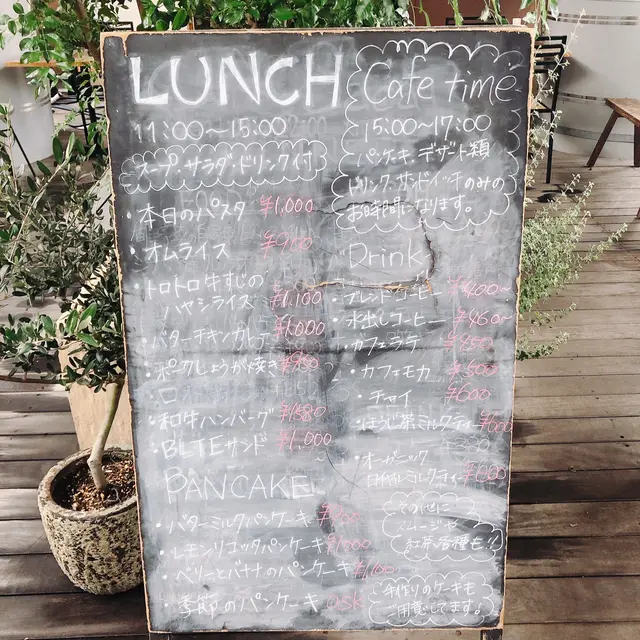 LUNCH
11:00〜15:00
スープ・サラダ・ドリンク付
・本日のパスタ ¥1,000
・オムライス
・トロトロ牛すじの
ハヤシライス ¥1,100
・バターチキンカレー ¥1,000
・ポークしょうが焼き
・和牛ハンバーグ ¥1580
・BLTEサンド ¥1,000
PANCAKE
・バターミルクパンケーキ
・レモンリコッタパンケーキ
・ベリーとバナナのパンケーキ ¥1,100
・季節のパンケーキ ask
Cafe time
15:00〜17:00
パンケーキ、デザート類
ドリンク、サンドイッチのみの
お時間になります。
Drink
・ブレンドコーヒー ¥400〜
・水出しコーヒー ¥460〜
・カフェラテ
・カフェモカ ¥500
・チャイ ¥600
・ほうじ茶ミルクティー ¥600
・オーガニック
ロイヤルミルクティー ¥600
その他に
スムージーや
紅茶各種も!!
手作りのケーキも
ご用意してます。